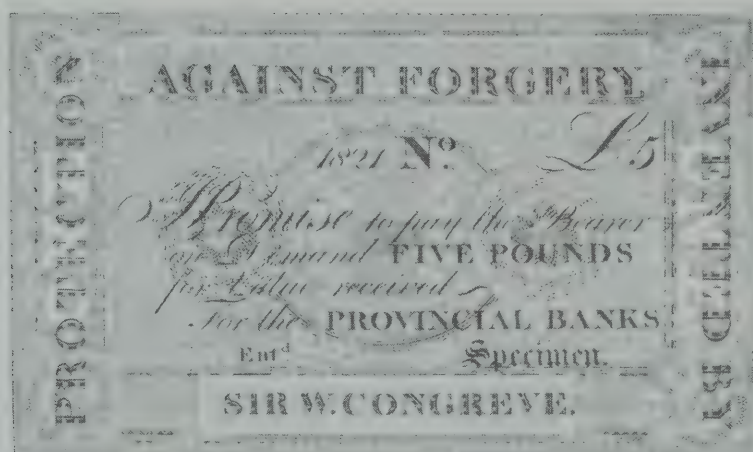 PROTECTION
AGAINST FORGERY
1821 No. £5
I Promise to pay the Bearer
on Demand FIVE POUNDS
for Value received
For the PROVINCIAL BANKS
Entd Specimen.
SIR W. CONGREVE.
BY